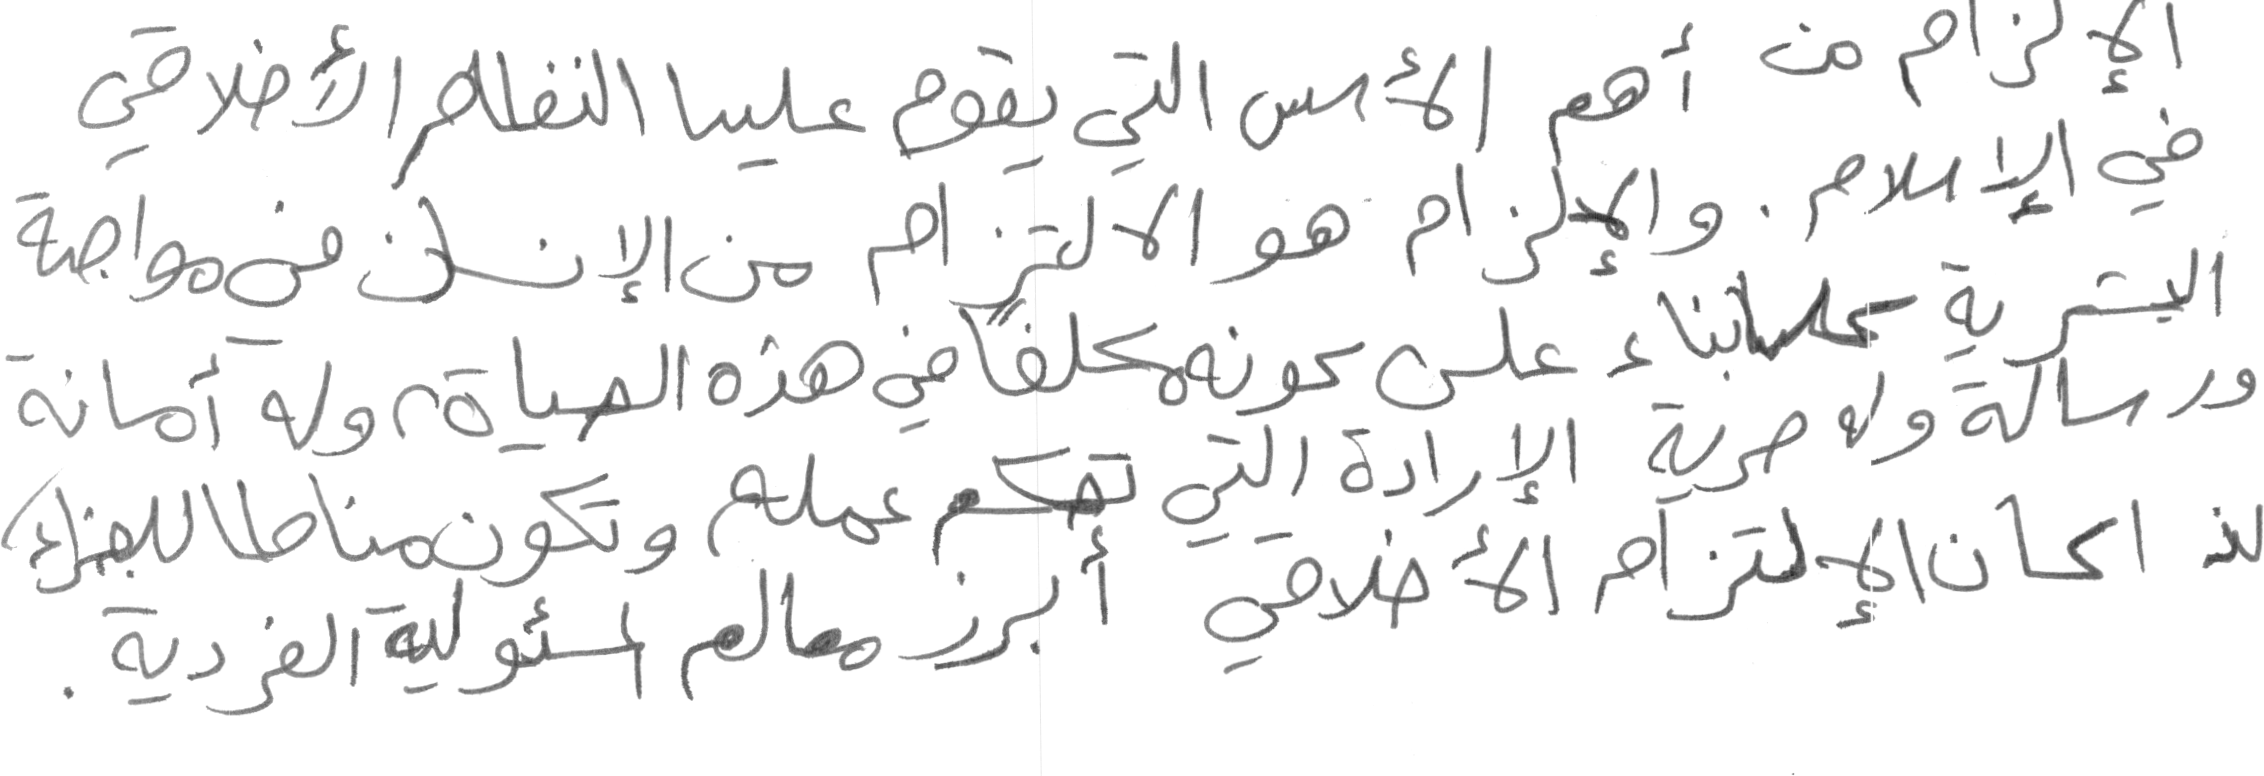 الإلزام من أهم الأسس التي يقوم عليها النظام الأخلاقي
في الإسلام. والإلزام هو الالتزام من الإنسان في مواجهة
البشرية بناء على كونه مكلفاً في هذه الحياة، وله أمانة
ورسالة وله حرية الإرادة التي تحكم عمله وتكون مناطا للجزاء،
لذا كان الإلتزام الأخلاقي أبرز معالم المسئولية الفردية.